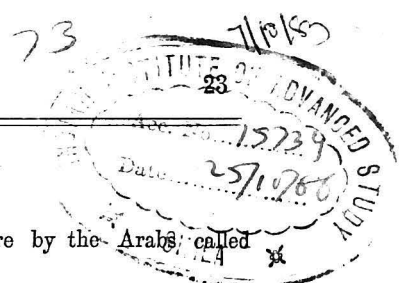 73 7/10/83
INSTITUTE OF ADVANCED STUDY
23
Acc. No. 15739
Date 25/10/66
re by the Arabs called